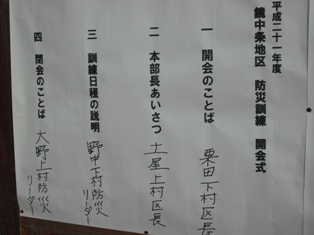 平成二十一年度
鏡中条地区 防災訓練 開会式
一 開会のことば 栗田下村区長
二 本部長あいさつ 土屋上村区長
三 訓練日程の説明 野中下村防災リーダー
四 閉会のことば 大野上村防災リーダー